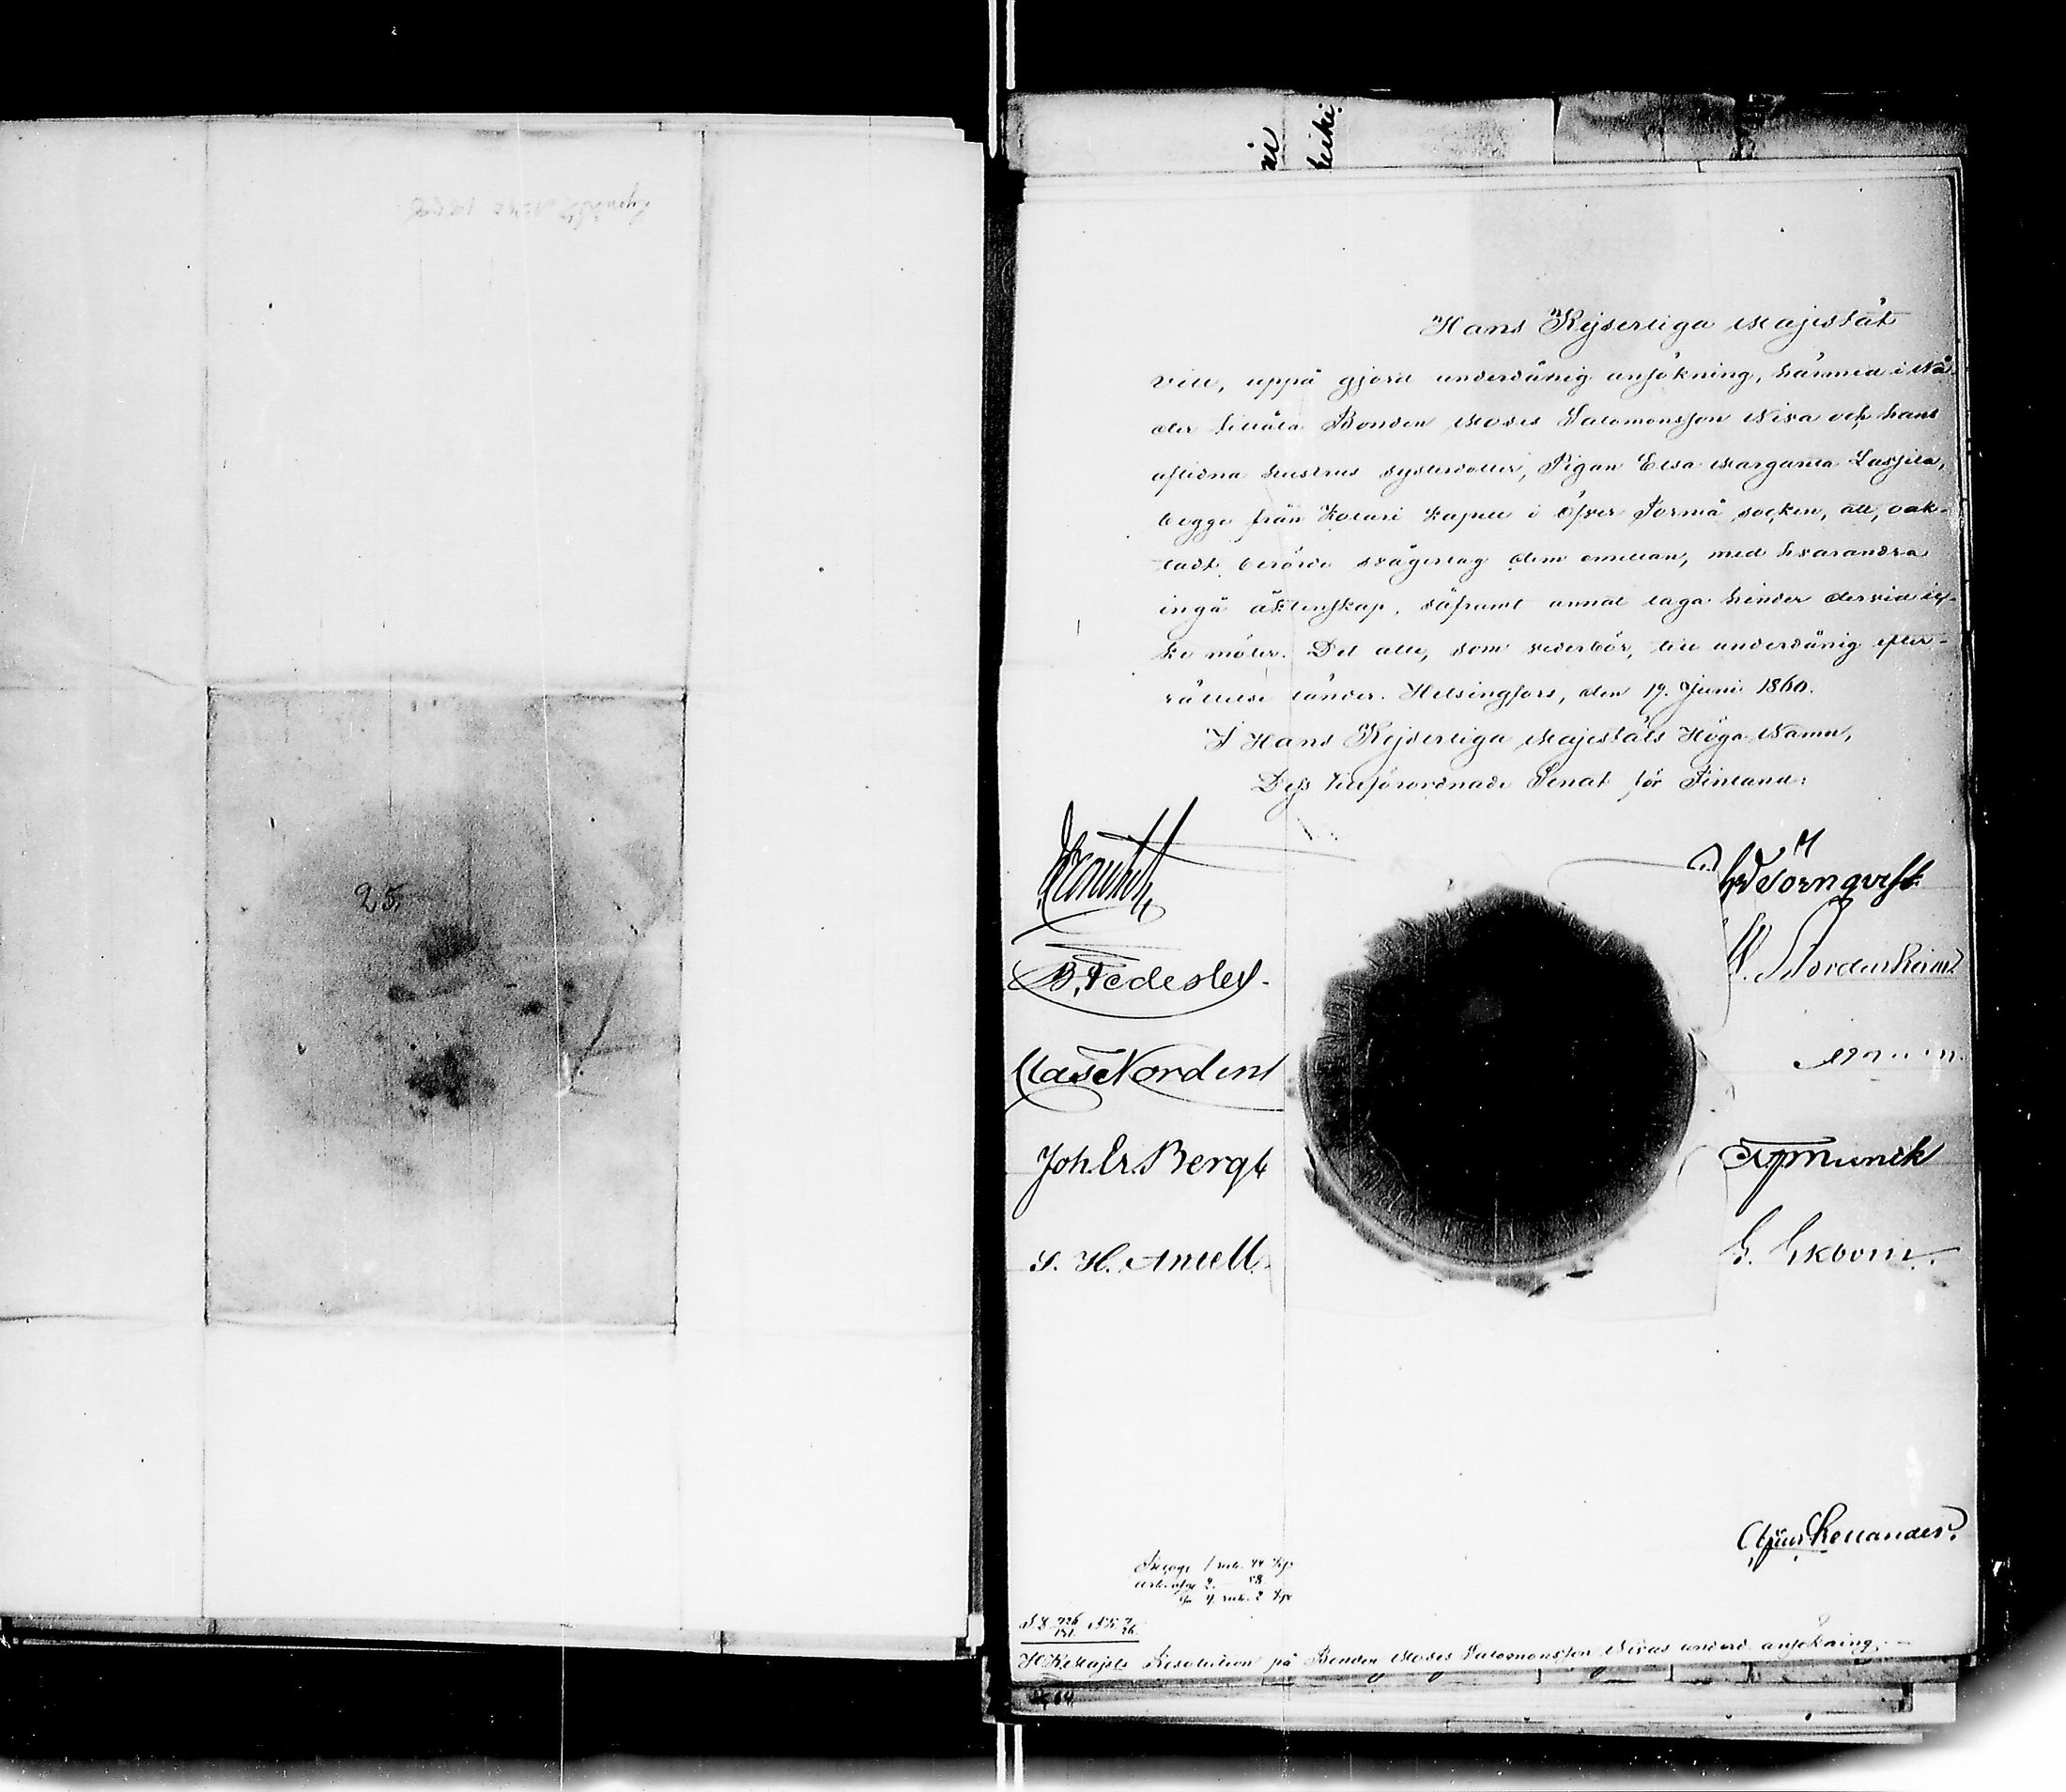 25.
Hans Kejserliga Majestät
vill, uppå gjord underdånig ansökning, härmed i Nå-
der tillåta Bonden Moses Salomonsson Niva och hans
aflidna hustrus systerdotter, Pigan Elsa Margareta Lassila,
begge från Kolari kapell i Öfver Torneå socken, att, oak-
tadt berörde svågerlag dem emellan, med hvarandra
ingå äktenskap, såframt annat laga hinder dervid ic-
ke möter. Det alle, som vederbör, till underdånig efter-
rättelse länder. Helsingfors, den 19. Juni 1860.
I Hans Kejserliga Majestäts Höga Namn,
Dess tillförordnade Senat för Finland:
Törnqvist
B. Federley.
W. Nordenheim
Clas Nordenl
Joh. Er. Bergb
Munck
S. H. Antell
E. Ekbom.
Renander.
Lösege 1 rub. 44 kop
2. 58.
4. rub. 2 kop
H K Majsts Resolution på Bonden Moses Salomonsson Nivas underd. ansökning.